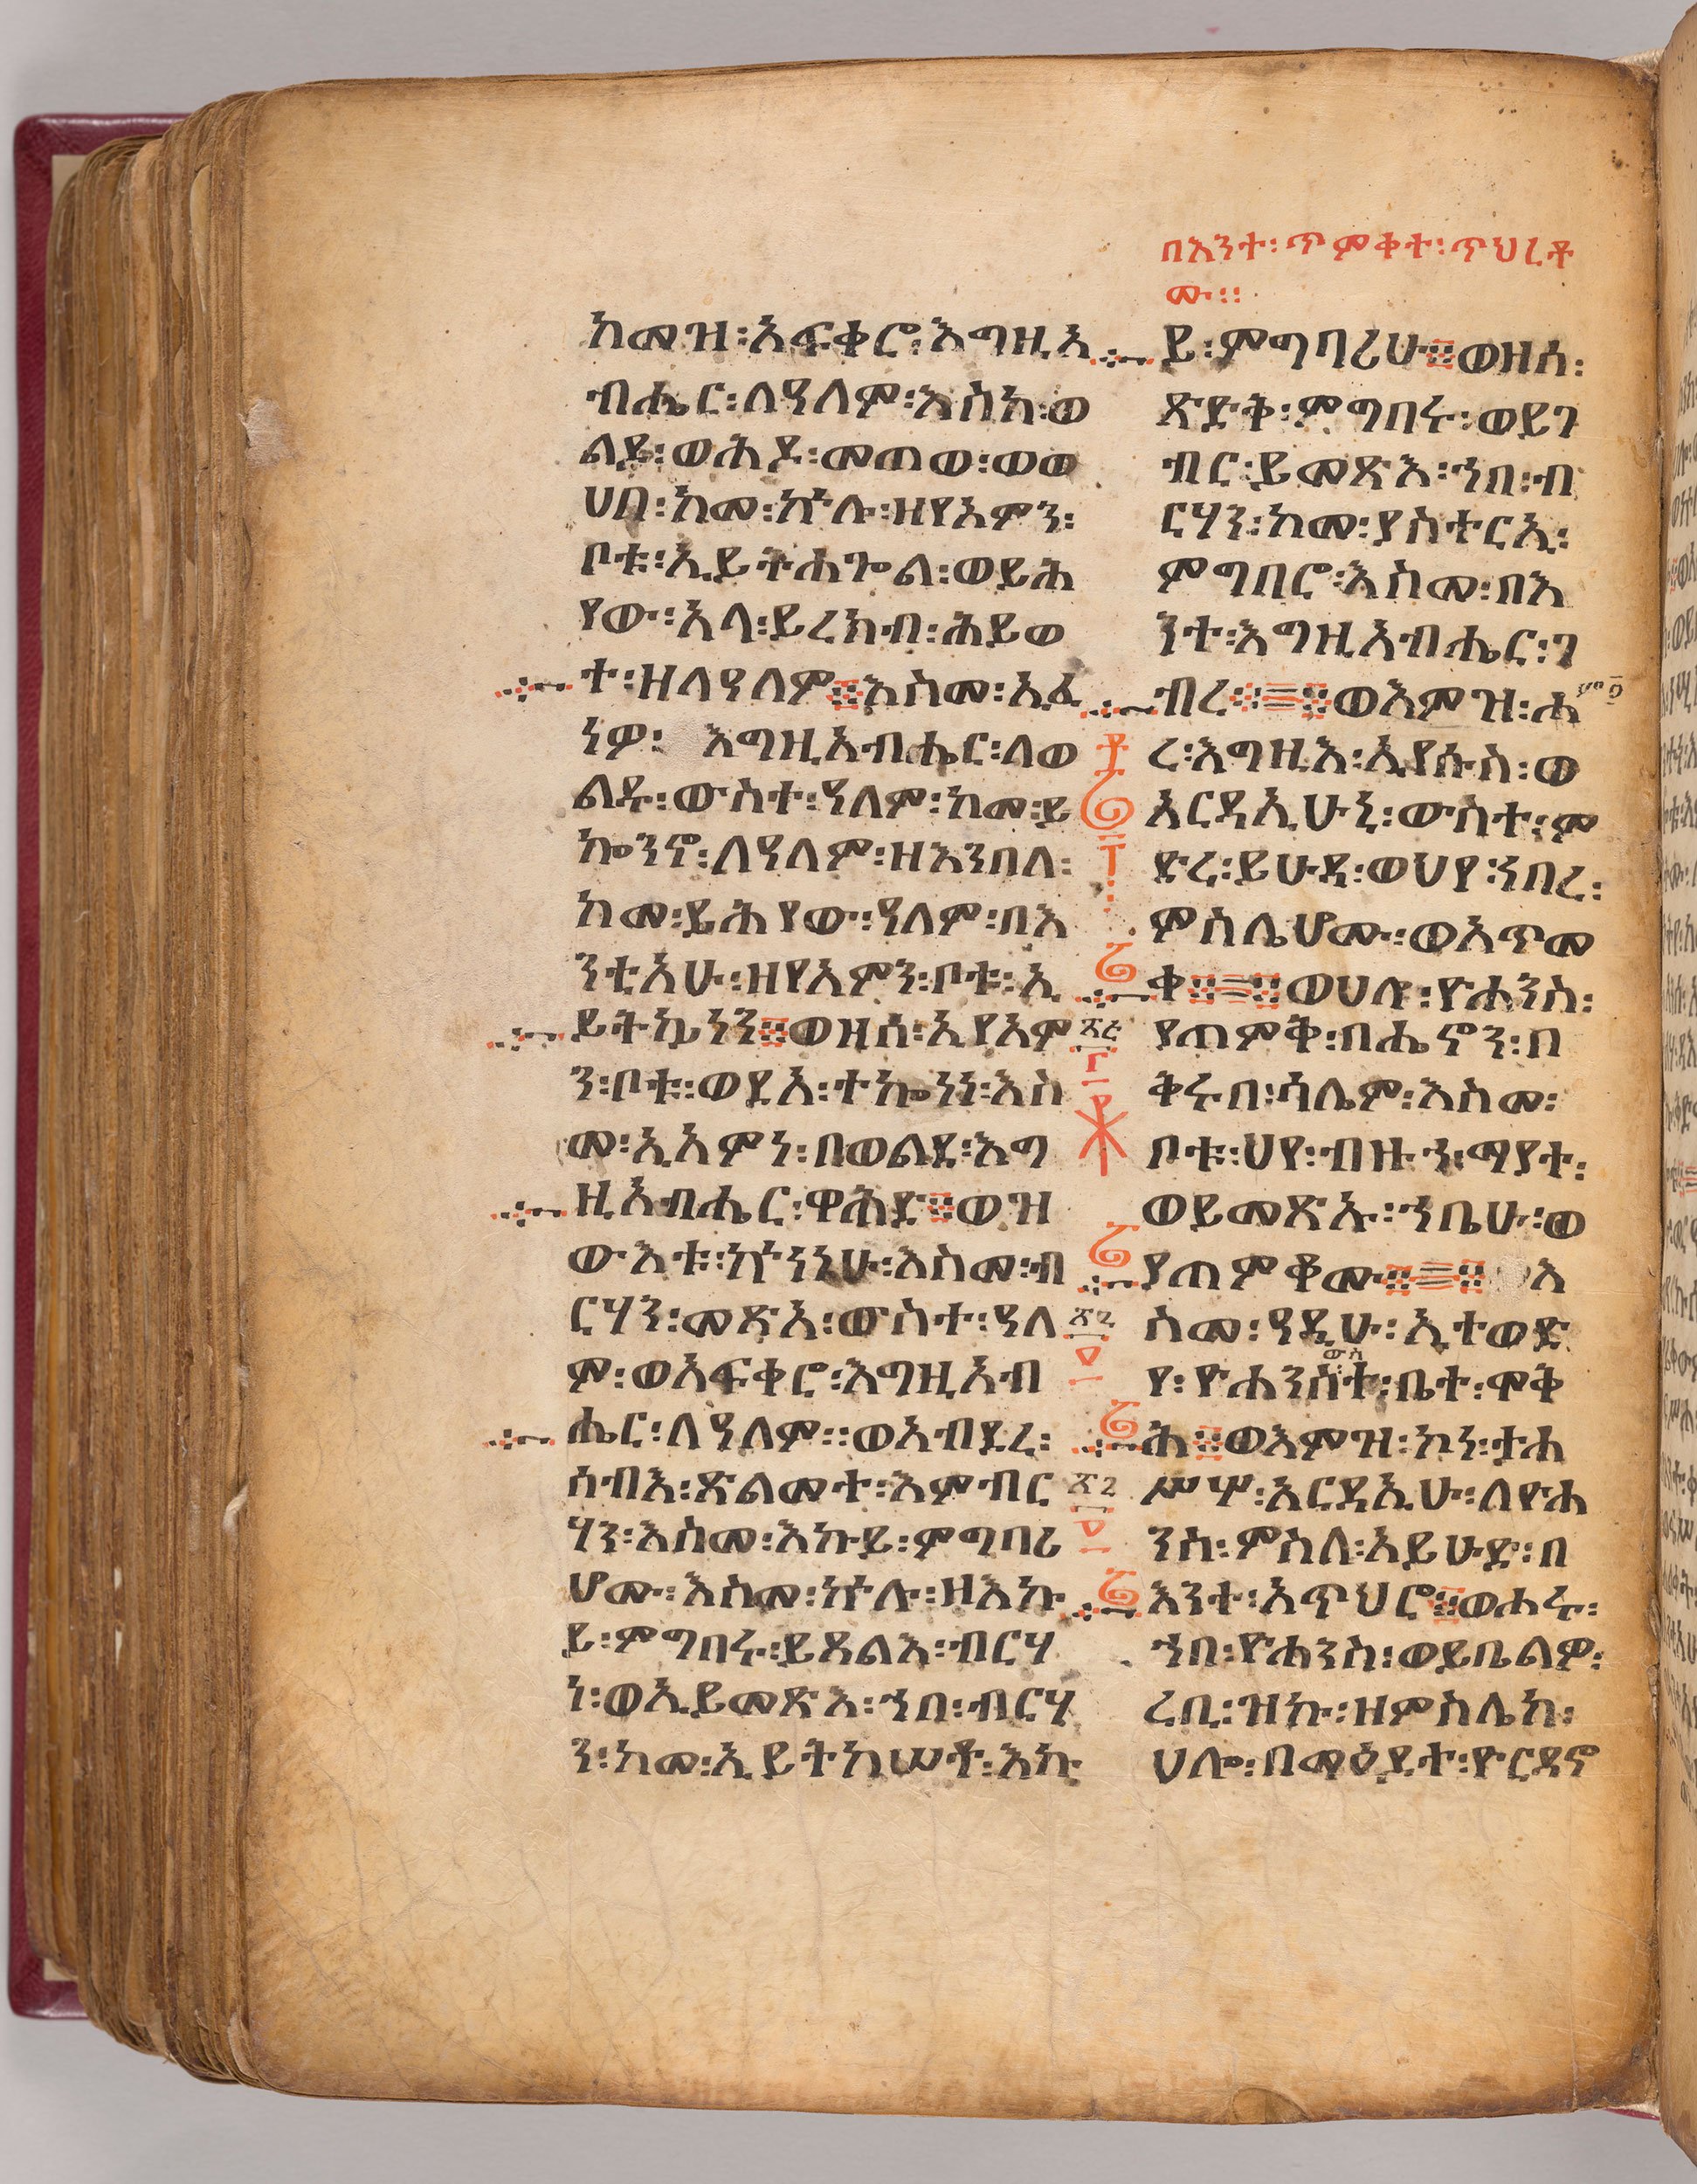 በእንተ፡ጥምቀተ፡ጥህረቶ
ሙ፡፡
ከመዝ፡አፍቀሮ፡እግዚአ
ብሔር፡ለዓለም፡እስከ፡ወ
ልዶ፡ወሕዶ፡መጠወ፡ወወ
ሀበ፡ከመ፡ኵሉ፡ዘየአምን፡
ቦቱ፡ኢይትሐጐል፡ወይሕ
የው፡አላ፡ይረክብ፡ሕይወ
ተ፡ዘለዓለም፡፡እስመ፡ኢፈ
ነዎ፡እግዚአብሔር፡ለወ
ልዱ፡ውስተ፡ዓለም፡ከመ፡ይ
ኰንኖ፡ለዓለም፡ዘእንበለ፡
ከመ፡ይሕየው፡ዓለም፡በእ
ንቲአሁ፡ዘየአምን፡ቦቱ፡ኢ
ይትኴነን፡፡ወዘሰ፡ኢየአም
ን፡ቦቱ፡ወዴአ፡ተኰነነ፡እስ
መ፡ኢአምነ፡በወልደ፡እግ
ዚአብሔር፡ዋሕድ፡፡ወዝ
ውእቱ፡ኵነኔሁ፡እስመ፡ብ
ርሃን፡መጽአ፡ውስተ፡ዓለ
ም፡ወአፍቀሮ፡እግዚአብ
ሔር፡ለዓለም፡፡ወአብደረ፡
ሰብእ፡ጽልመተ፡እምብር
ሃን፡እስመ፡እኩይ፡ምግባሪ
ሆሙ፡እስመ፡ኵሉ፡ዘእኩ
ይ፡ምግበሩ፡ይጸልእ፡ብርሃ
ነ፡ወኢይመጽእ፡ኀበ፡ብርሃ
ን፡ከመ፡ኢይትከሠቶ፡እኩ
ይ፡ምግባሪሁ፡፡ወዘሰ፡
ጽድቅ፡ምግበሩ፡ወይገ
ብር፡ይመጽእ፡ኀበ፡ብ
ርሃን፡ከመ፡ያስተርኢ፡
ምግበሮ፡እስመ፡በእ
ንተ፡እግዚአብሔር፡ገ
ብረ፡፡ወእምዝ፡ሖ
ረ፡እግዚእ፡ኢየሱስ፡ወ
አርዳኢሁኒ፡ውስተ፡ም
ድረ፡ይሁዳ፡ወህየ፡ነበረ፡
ምስሌሆሙ፡ወአጥመ
ቀ፡፡ወሀሎ፡ዮሐንስ፡
ያጠምቅ፡በሔኖን፡በ
ቅሩበ፡ሳሌም፡እስመ፡
ቦቱ፡ህየ፡ብዙኀ፡ማያተ፡
ወይመጽኡ፡ኀቤሁ፡ወ
ያጠምቆሙ፡፡እ
ስመ፡ዓዲሁ፡ኢተወድ
ውስ
የ፡ዮሐንስተ፡ቤተ፡ሞቅ
ሕ፡፡ወእምዝ፡ኮነ፡ተሐ
ሥሦ፡አርዳኢሁ፡ለዮሐ
ንስ፡ምስለ፡አይሁድ፡በ
እንተ፡አጥህሮ፡፡ወሖሩ፡
ኀበ፡ዮሐንስ፡ወይቤልዎ፡
ረቢ፡ዝኩ፡ዘምስሌከ፡
ሀሎ፡በማዕዶተ፡ዮርዳኖ